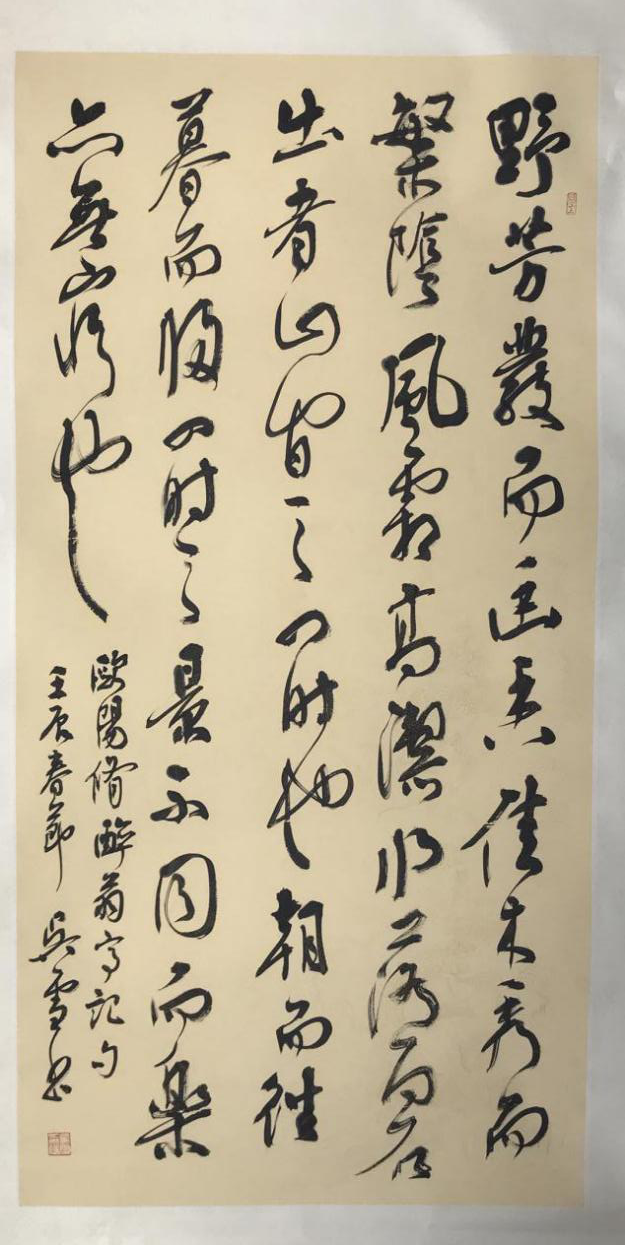 野芳發而幽香佳木秀而
繁陰風霜高潔水落而石
出者山間之四時也朝而往
暮而歸四時之景不同而樂
亦無窮也
歐陽脩醉翁亭記句
壬辰春節 吳雪書